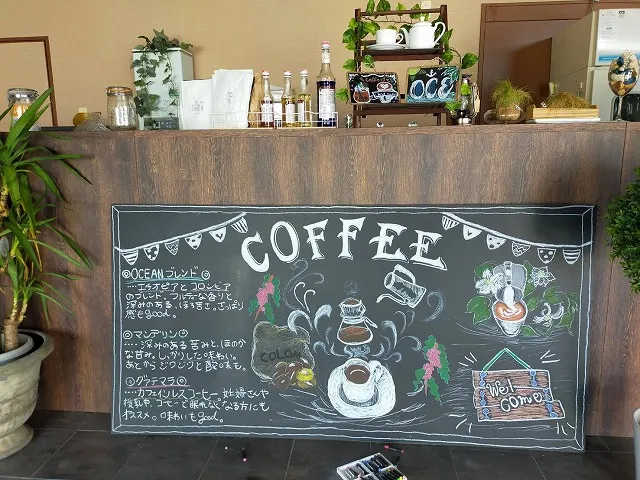 COFFEE
◎OCEANブレンド☺
‥‥エチオピアとコロンビア
のブレンド。フルーティーな香りと
深みのある、ほろ苦さ。さっぱり
感もgood。
◎マンデリン
‥‥深みのある苦みと、ほのか
な甘み。しっかりした味わい。
あとからジワジワと酸味も。
◎グァテマラ
‥‥カフェインレスコーヒー。妊婦さんや
授乳中、コーヒーで眠れなくなる方にも
オススメ。味わいもgood。
COLOM
Wel
come
OCE